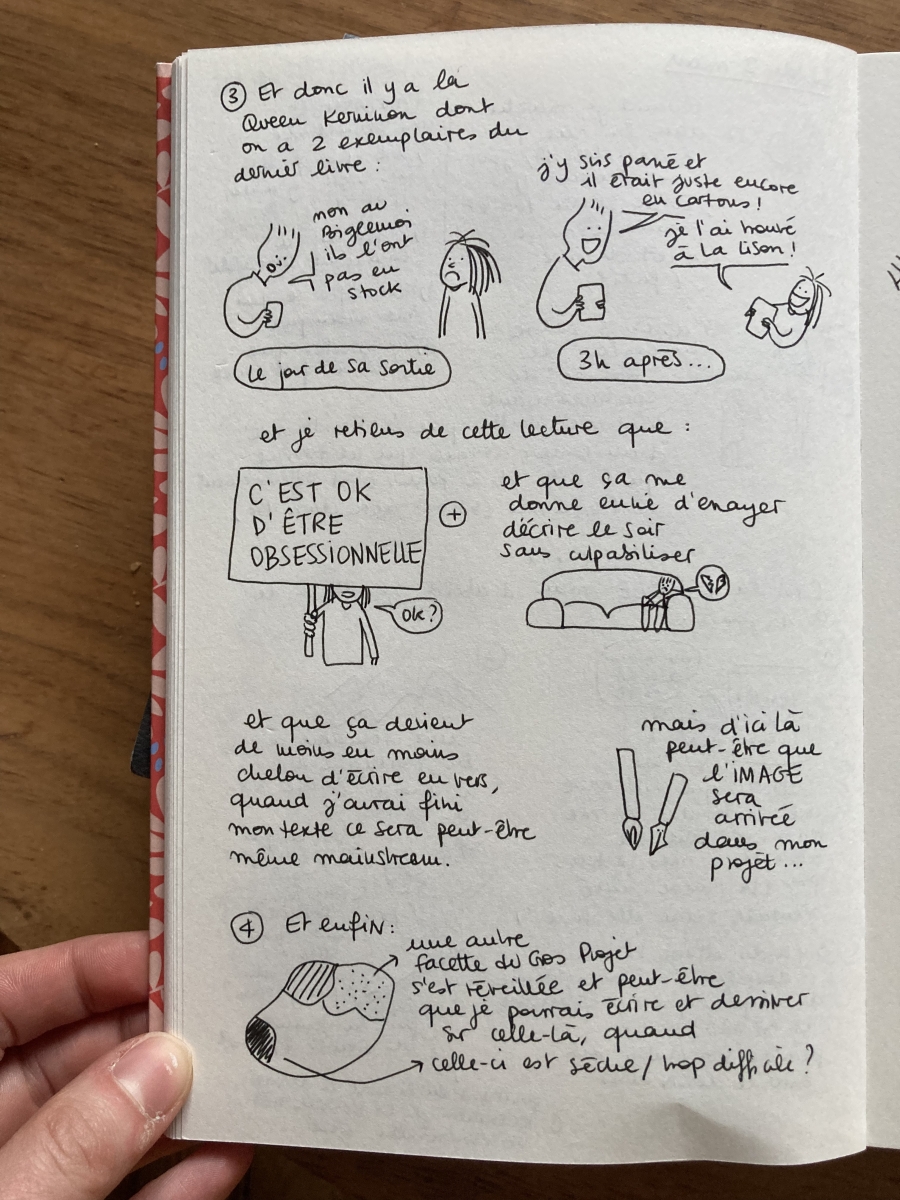 ③ Et donc il y a la
Queen Kerninon dont
on a 2 exemplaires du
dernier livre :
non au
Bigleuwoi
ils l'ont
pas en
stock
Le jour de sa sortie
j'y suis passé et
il était juste encore
en cartons !
je l'ai trouvé
à La Lison !
3h après...
et je retiens de cette lecture que :
C'EST OK
D'ÊTRE
OBSESSIONNELLE
OK?
+
et que ça me
donne envie d'essayer
décrire le soir
sans culpabiliser
et que ça devient
de moins en moins
chelou d'écrire en vers,
quand j'aurai fini
mon texte ce sera peut-être
même mainstream.
mais d'ici là
peut-être que
l'IMAGE
sera
arrivée
dans mon
projet...
④ Et enfin :
une autre
facette du Gros Projet
s'est réveillée et peut-être
que je pourrais écrire et dessiner
sr celle-là, quand
celle-ci est sèche/trop difficile ?